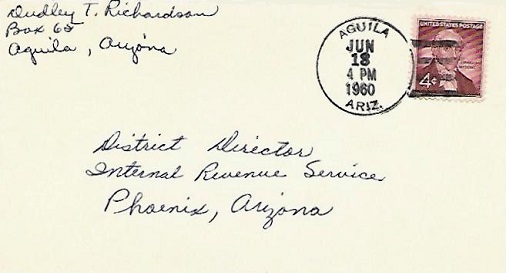 Dudley T. Richardson
Box 65
Aguila, Arizona
AGUILA
JUN
13
4 PM
1960
ARIZ.
UNITED STATES POSTAGE
4¢
District Director
Internal Revenue Service
Phoenix, Arizona